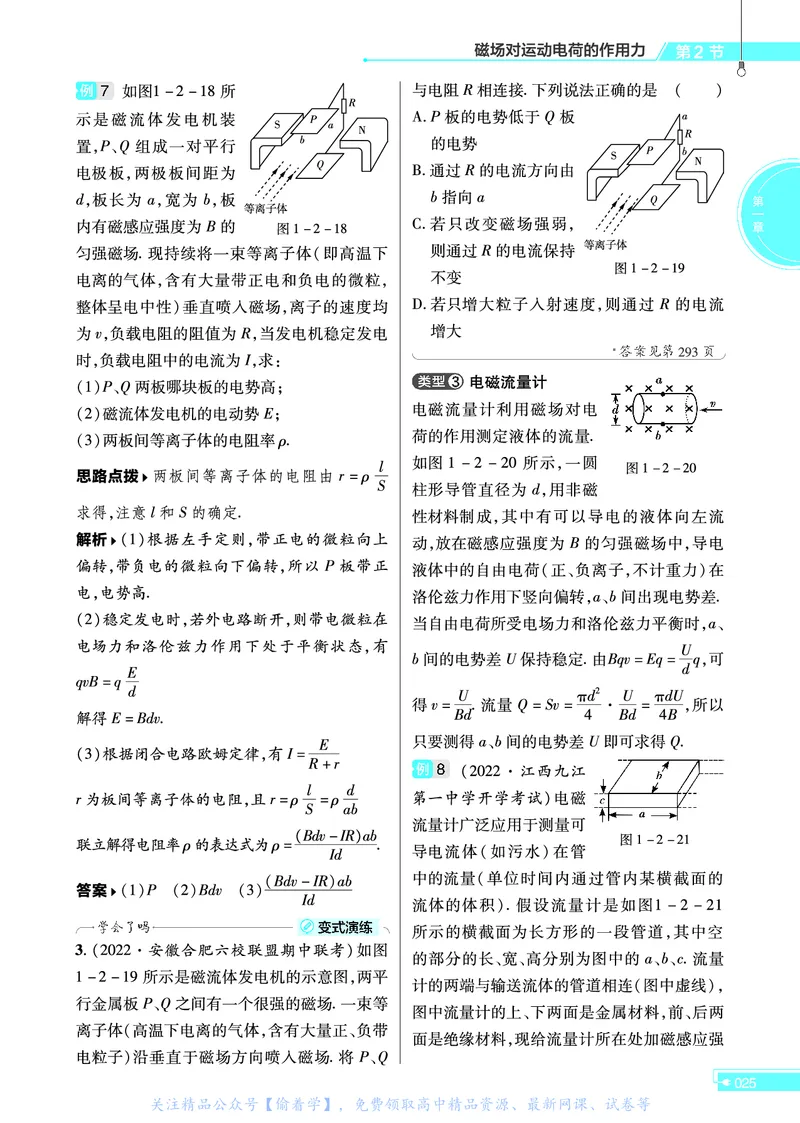 磁场对运动电荷的作用力 第2节
例7 如图1-2-18所
示是磁流体发电机装
置,P、Q组成一对平行
电极板,两极板间距为
d,板长为a,宽为b,板
内有磁感应强度为B的
匀强磁场. 现持续将一束等离子体(即高温下
电离的气体,含有大量带正电和负电的微粒,
整体呈电中性)垂直喷入磁场,离子的速度均
为v,负载电阻的阻值为R,当发电机稳定发电
时,负载电阻中的电流为I,求:
S P a R N b Q
等离子体
图1-2-18
(1)P、Q两板哪块板的电势高;
(2)磁流体发电机的电动势E;
(3)两板间等离子体的电阻率ρ.
思路点拨 两板间等离子体的电阻由 r=ρ l/S
求得,注意l和S的确定.
解析 (1)根据左手定则,带正电的微粒向上
偏转,带负电的微粒向下偏转,所以P板带正
电,电势高.
(2)稳定发电时,若外电路断开,则带电微粒在
电场力和洛伦兹力作用下处于平衡状态,有
qvB=q E/d
解得E=Bdv.
(3)根据闭合电路欧姆定律,有I= E/(R+r)
r为板间等离子体的电阻,且r=ρ l/S =ρ d/ab
联立解得电阻率ρ的表达式为ρ= (Bdv-IR)ab/Id .
答案 (1)P (2)Bdv (3) (Bdv-IR)ab/Id
学会了吗 变式演练
3. (2022·安徽合肥六校联盟期中联考)如图
1-2-19所示是磁流体发电机的示意图,两平
行金属板P、Q之间有一个很强的磁场. 一束等
离子体(高温下电离的气体,含有大量正、负带
电粒子)沿垂直于磁场方向喷入磁场. 将P、Q
与电阻R相连接. 下列说法正确的是 ( )
A. P板的电势低于Q板
的电势
B. 通过R的电流方向由
b指向a
C. 若只改变磁场强弱,
则通过R的电流保持
不变
D. 若只增大粒子入射速度,则通过R的电流
增大
a R b S P N Q
等离子体
图1-2-19
*答案见第293页
类型3 电磁流量计
电磁流量计利用磁场对电
荷的作用测定液体的流量.
如图1-2-20所示,一圆
柱形导管直径为d,用非磁
性材料制成,其中有可以导电的液体向左流
动,放在磁感应强度为B的匀强磁场中,导电
液体中的自由电荷(正、负离子,不计重力)在
洛伦兹力作用下竖向偏转,a、b间出现电势差.
当自由电荷所受电场力和洛伦兹力平衡时,a、
b间的电势差U保持稳定. 由Bqv=Eq= U/d q,可
得v= U/Bd . 流量Q=Sv= πd²/4 · U/Bd = πdU/4B ,所以
只要测得a、b间的电势差U即可求得Q.
a d v b
图1-2-20
例8 (2022·江西九江
第一中学开学考试)电磁
流量计广泛应用于测量可
导电流体(如污水)在管
中的流量(单位时间内通过管内某横截面的
流体的体积). 假设流量计是如图1-2-21
所示的横截面为长方形的一段管道,其中空
的部分的长、宽、高分别为图中的a、b、c. 流量
计的两端与输送流体的管道相连(图中虚线),
图中流量计的上、下两面是金属材料,前、后两
面是绝缘材料,现给流量计所在处加磁感应强
b c a
图1-2-21
第一章
025
关注精品公众号【偷着学】,免费领取高中精品资源、最新网课、试卷等